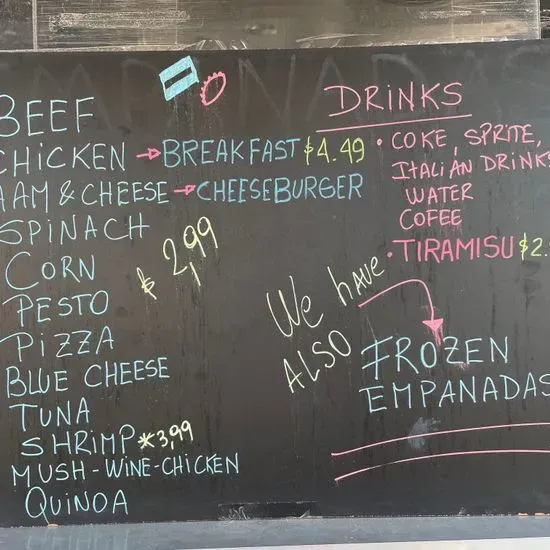 BEEF
CHiCKEN → BREAKFAST $4.49
HAM & CHEESE → CHEESEBURGER
SPINACH
CORN
$2,99
PESTO
PiZZA
BLUE CHEESE
TUNA
SHRIMP *3,99
MUSH-WINE-CHICKEN
QUiNOA
DRiNKS
• COKE, SPRITE,
ITALiAN DRINKS
WATER
COFEE
• TIRAMISU $2.
We have
ALSO
FROZEN
EMPANADAS